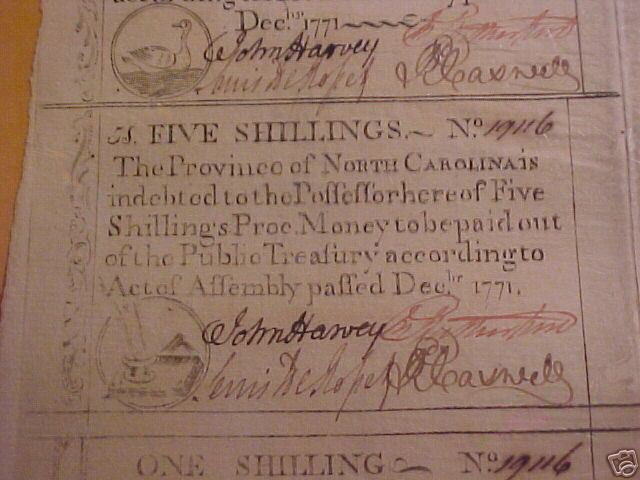 Decbr 1771
John Harvey
Lewis De Rosset
R Caswell
A. FIVE SHILLINGS. No. 19116
The Province of NORTH CAROLINA is
indebted to the Poſſeſſor hereof Five
Shillings Proc. Money to be paid out
of the Public Treaſury according to
Act of Aſſembly paſſed Decbr 1771.
John Harvey
Lewis De Rosset R Caswell
ONE SHILLING No. 19116